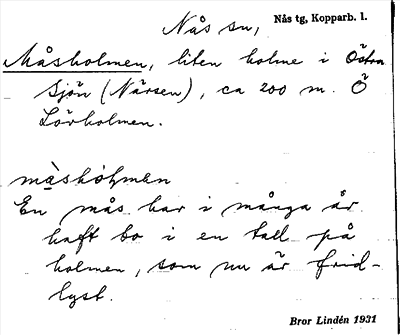 Nås sn, Nås tg, Kopparb. l.
Måsholmen, liten holme i Östra
Sjön (Närsen), ca 200 m. Ö
Lövholmen.
måshòl̥men
En mås har i många år
haft bo i en tall på
holmen, som nu är frid-
lyst.
Bror Lindén 1931